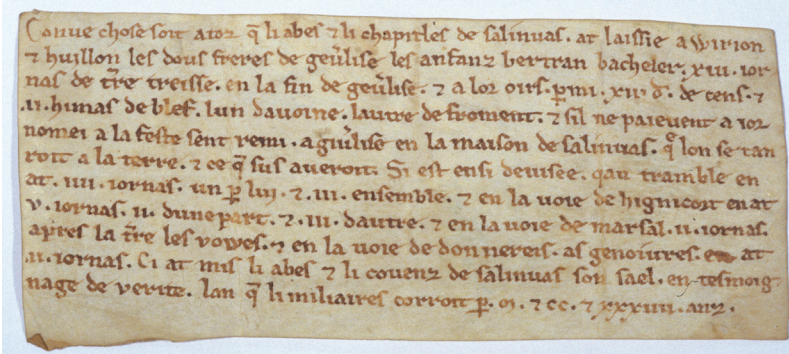 Conue chose soit a toz q̄ li abes ⁊ li chapitles de salinuas. at laissie a wirion
⁊ huillon les dous freres de geu̾lise les anfanz bertran bacheler. xiii. ior-
nas de tr̄e treisse. en la fin de geu̾lise. ⁊ a lor oirs. p̲mi. xiiii. d̄. de cens. ⁊
.ii. himas de blef. lun dauoine. lautre de froment. ⁊ sil ne paieuent a ior
nomei a la feste sent remi. a gu̾lise en la maison de salinuas. q̄ lon se tan
roit a la terre. ⁊ ce q̄ sus aueroit. Si est ensi deuisee. qau tramble en
at. iiii. iornas. un p̲ lui. ⁊ .iii. ensemble. ⁊ en la uoie de hignicort en at
v. iornas. ii. dune part. ⁊ .iii. dautre. ⁊ en la uoie de marsal .ii. iornas.
apres la tr̄e les vowes. ⁊ en la uoie de donnereis. as genoiures. at
.ii. iornas. Ci at mis li abes ⁊ li couenz de salinuas son sael. en tesmoig-
nage de verite. lan q̄ li miliaires corroit p̲ .m. ⁊ cc. ⁊ xxxiiii. anz.